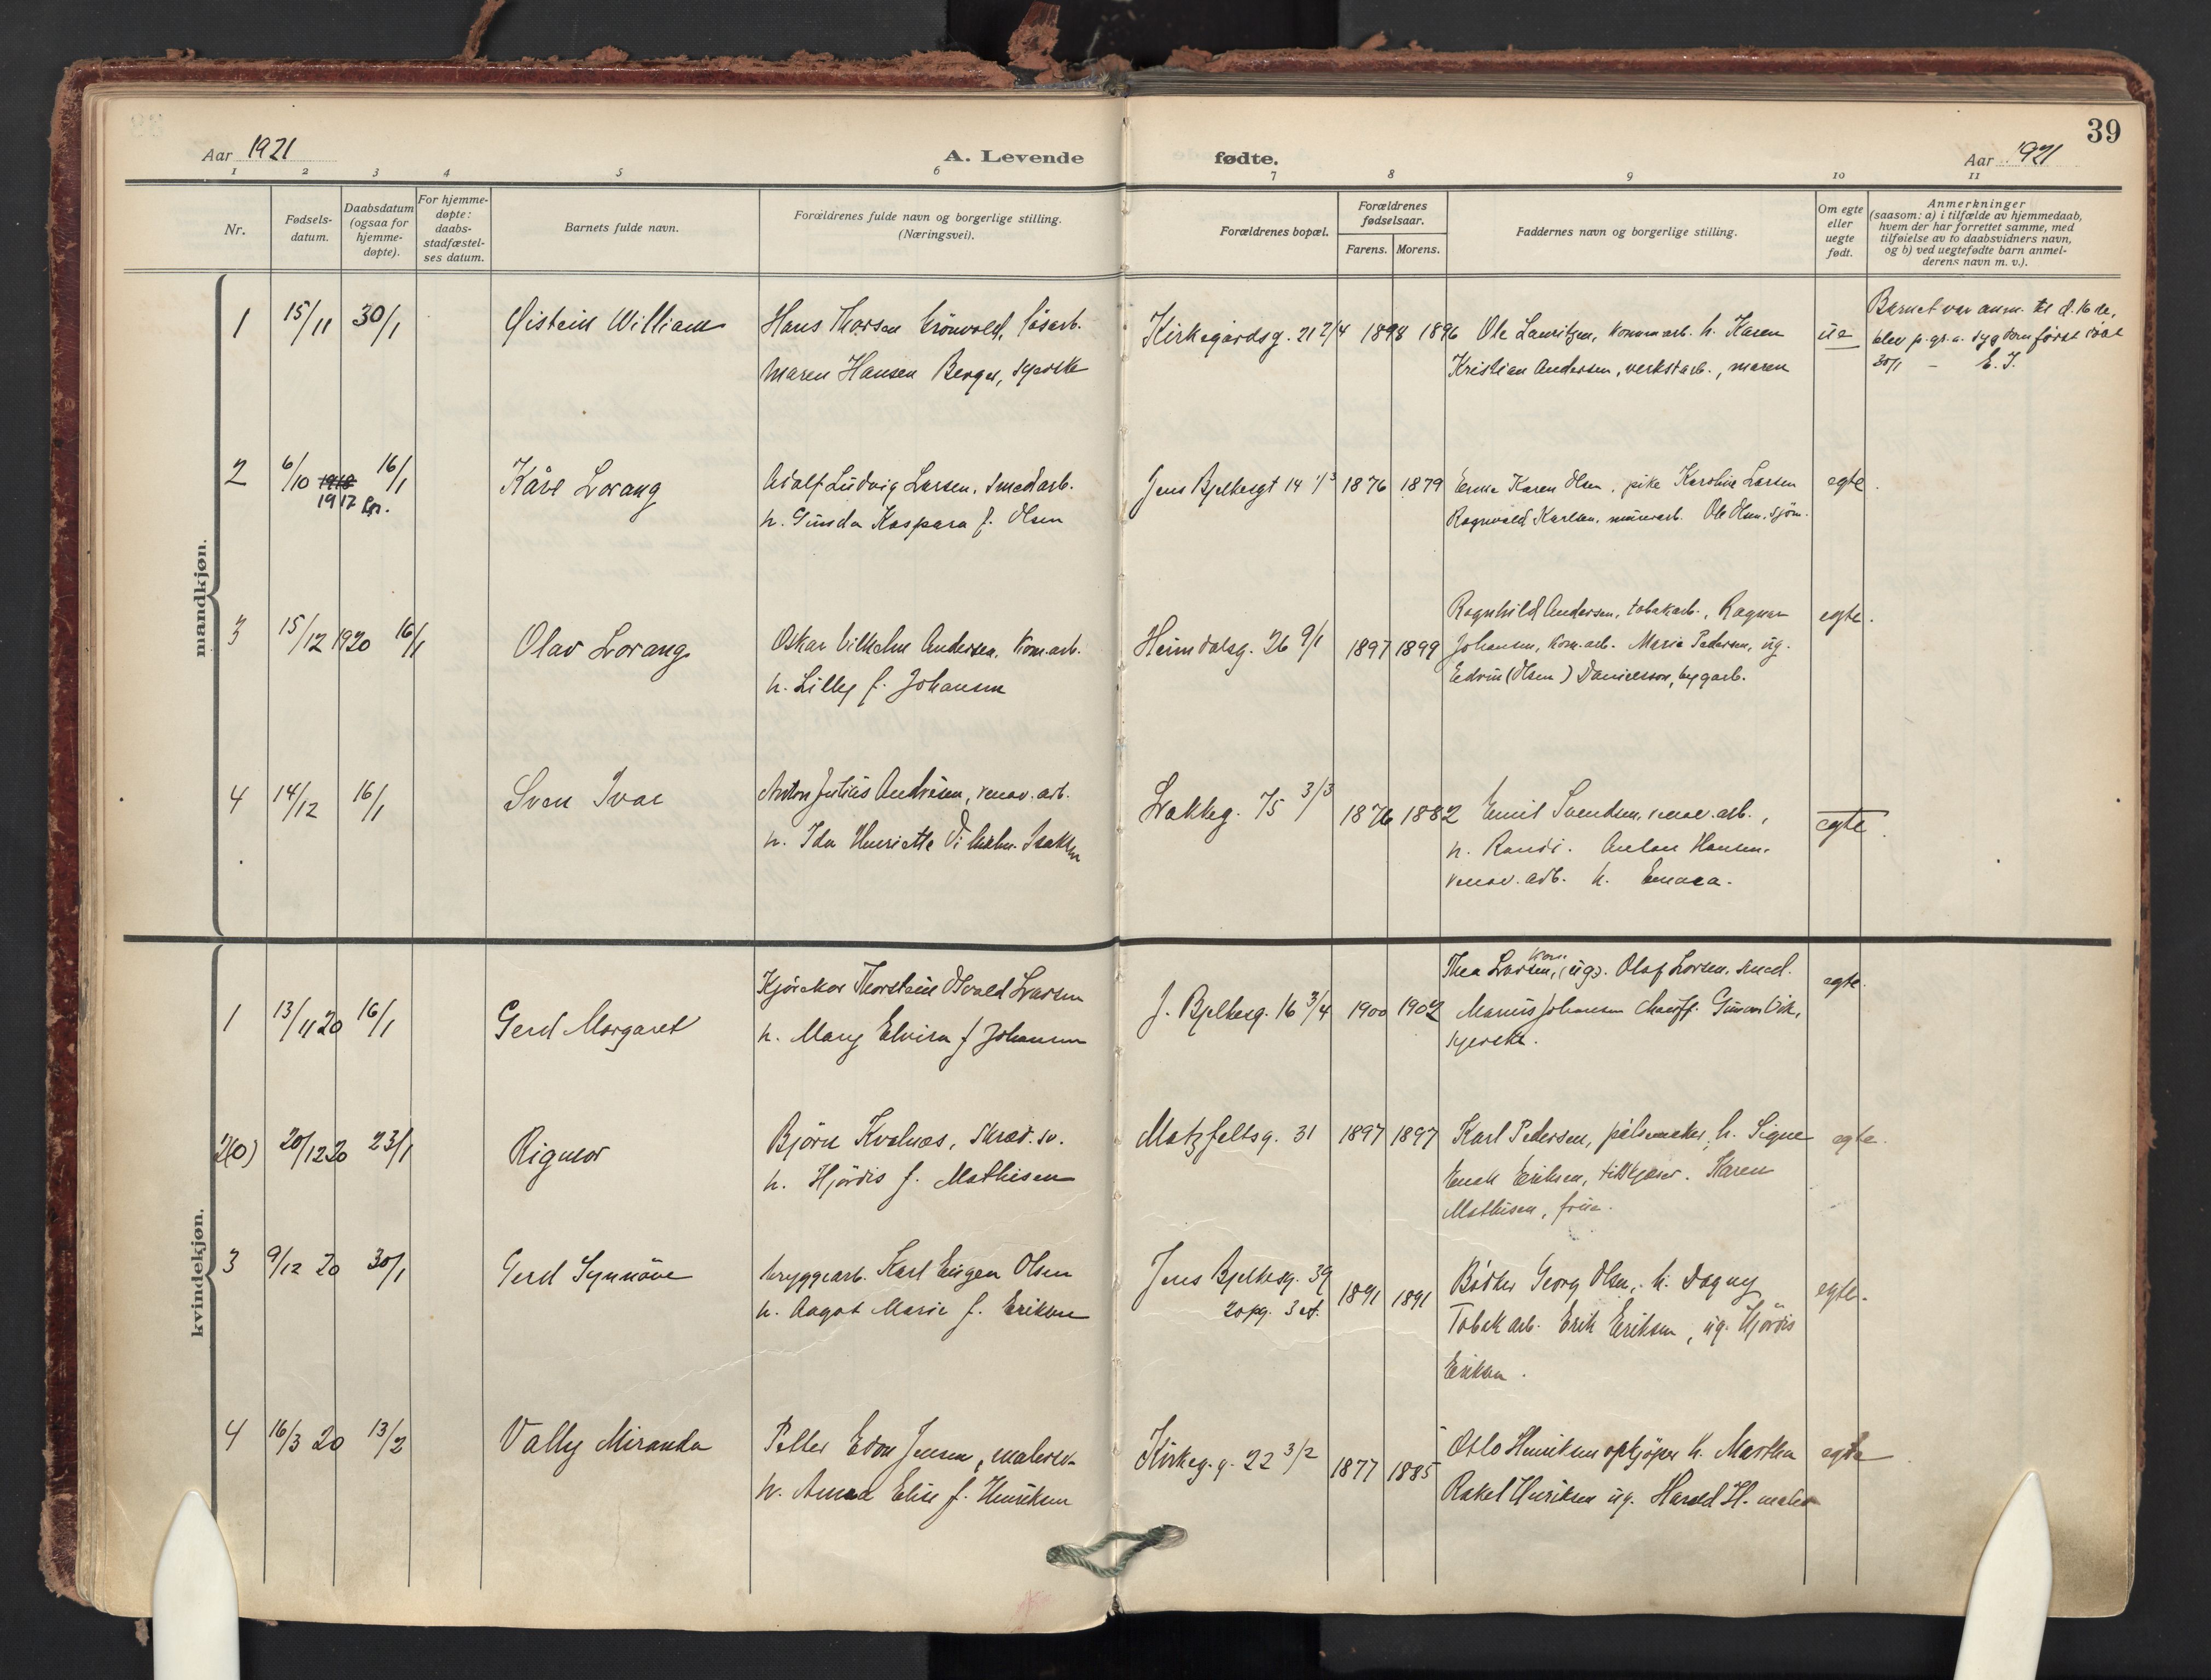 39
Aar 1921
A. Levende
fødte.
Aar 1921
1 2 3 4 5 6 7 8 9 10 11
Nr.
Fødsels-
datum.
Daabsdatum
(ogsaa for
hjemme-
døpte).
For hjemme-
døpte:
daabs-
stadfæstel-
ses datum.
Barnets fulde navn.
Forældrenes fulde navn og borgerlige stilling.
(Næringsvei).
Forældrenes bopæl.
Forældrenes
fødselsaar.
Farens. Morens.
Faddernes navn og borgerlige stilling.
Om egte
eller
uegte
født.
Anmerkninger
(saasom: a) i tilfælde av hjemmedaab,
hvem der har forrettet samme, med
tilføielse av to daabsvidners navn,
og b) ved uegtefødte barn anmel-
derens navn m. v.).
mandkjøn.
1 15/11 30/1 Øistein William Hans Thorsen Grönvold, løsarb. Kirkegårdsg. 21 2/4 1898 1896 Ole Lauritzen, kommarb. h. Karen ue Barnet var anm. til d. 16de,
Maren Hansen Berger, syerske Kristian Andersen, verkstarb., Maren blev p.gr.a. sygdom først døbt
30/1 - E. J.
2 6/10 1918 16/1 Kåre Lorang Adolf Ludvig Larsen, smedarb. Jens Bjelkesgt 14 1/3 1876 1879 Erna Karen Olsen, pike Karoline Larsen egte.
1917
h. Gunda Kaspara f. Olsen Ragnvald Karlsen, murarb. Ole Olsen, sjöm.
3 15/12 1920 16/1 Olav Lorang Oskar Vilhelm Andersen, kom.arb. Heimdalsg. 26 9/1 1897 1899 Ragnhild Andersen, tobakarb., Ragnar egte.
h. Lilly f. Johansen Johansen, kom.arb. Marie Pedersen, ug.
Edvin (Olsen) Danielsson, bygarb.
4 14/12 16/1 Sven Ivar Anton Julius Andresen, renov. arb. Lakkeg. 75 3/3 1876 1882 Emil Svendsen, renov. arb., egte.
h. Ida Henriette Vilhelm. Isaksen h. Randi. Anton Hansen,
renov. arb. h. Emma.
kvindekjøn.
1 13/11 20 16/1 Gerd Margaret Kjörekar Thorstein Osvald Larsen J. Bjelkesg. 16 3/4 1900 1902 Thea Larsen, (ug). Olaf Larsen, smed. egte.
h. Mary Elvira f. Johansen Marius Johansen chauff. Gunvor Vik,
syerske.
2(0) 20/12 20 23/1 Rigmor Björn Kvalnæs, skræd. sv. Motzfeltsg. 31 1897 1897 Karl Pedersen, pölsemaker, h. Signe egte.
h. Hjördis f. Mathisen Enok Eriksen, tilskjærer. Karen
Mathisen, frue.
3 9/12 20 30/1 Gerd Synnöve bryggearb. Karl Eugen Olsen Jens Bjelkesg. 39 1891 1891 Bödker Georg Olsen, h. Dagny egte.
h. Aagot Marie f. Eriksen 2opg. 3 et. Tobakarb. Erik Eriksen, ug. Hjördis
Eriksen.
4 16/3 20 13/2 Vally Miranda Petter Edon Jensen, malersv. Kirkeg.g. 22 3/2 1877 1885 Otto Henriksen opkjöper h. Martha egte
h. Anna Elise f. Henriksen Rakel Henriksen ug. Harald H. maler